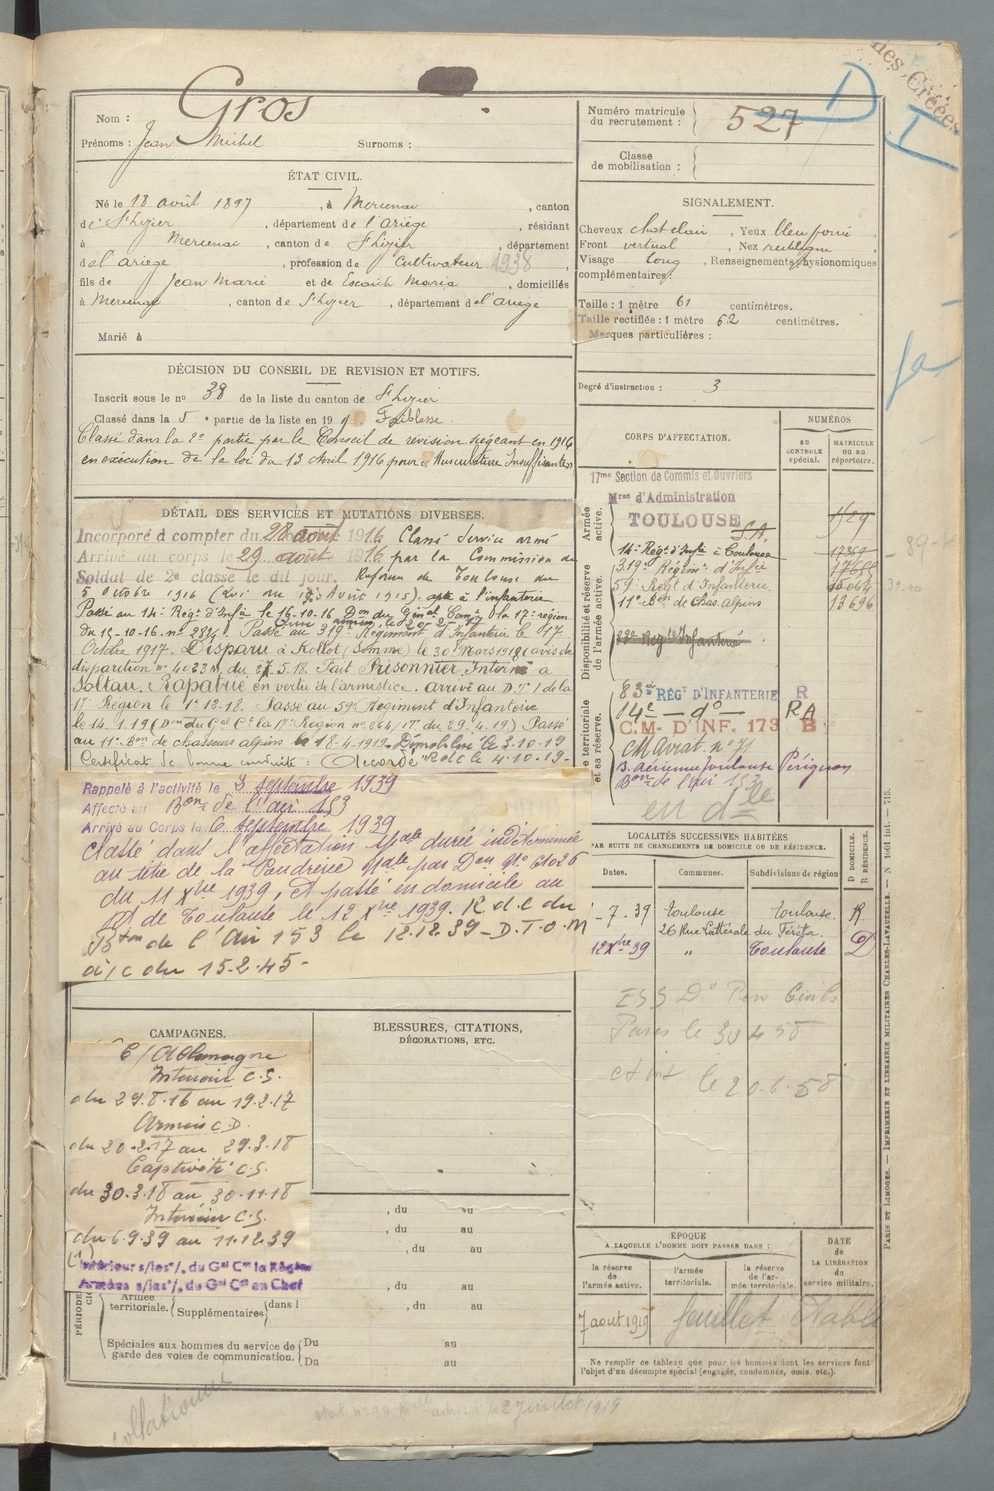 Nom : Gros
Prénoms : Jean Michel Surnoms :
ÉTAT CIVIL.
Né le 18 août 1897, à Mercenac, canton
de St Lizier, département de l'Ariège, résidant
à Mercenac, canton de St Lizier, département
de l'Ariège, profession de Cultivateur 1938,
fils de Jean Marie et de Escaich Maria, domiciliés
à Mercenac, canton de St Lizier, département de l'Ariège
Marié à
DÉCISION DU CONSEIL DE REVISION ET MOTIFS.
Inscrit sous le no 38 de la liste du canton de St Lizier
Classé dans la 5e partie de la liste en 19 Faiblesse
Classé dans la 2e partie par le Conseil de révision siégeant en 1916
en exécution de la loi du 13 Avril 1916 pour Musculature Insuffisante
DÉTAIL DES SERVICES ET MUTATIONS DIVERSES.
Incorporé à compter du 28 août 1916 Classé Service armé
Arrivé au corps le 29 août 1916 par la Commission de
Soldat de 2e classe le dit jour. Réforme de Toulouse du
5 Octobre 1916 (Loi du Avril 1915). apte à l'infanterie
Passé au 14e Régt d'Infie le 16-10-16 Don du Génal Comt la 17e région
du 15-10-16. no 2824. Passé au 319e Régiment d'Infanterie le 17
Octobre 1917. Disparu à Rollot (Somme) le 30 Mars 1918 (avis de
disparition no 4023 M, du 27.5.18. Fait Prisonnier, Interné à
Soltau. Rapatrié en vertu de l'armistice. arrivé au D.T.I de la
17e Région le 1er-12-18. Passé au 59e Régiment d'Infanterie
le 14.1.19 (Don du Gal Ct la 17e Région no 264/IT du 29.4.19) Passé
au 11e Bon de chasseurs alpins le 18-4-1919. Démobilisé le 3-10-19
Certificat de bonne conduite : Accordé RdlC le 4-10-19-
Rappelé à l'activité le 3 septembre 1939
Affecté au Bon de l'air 153
Arrivé au Corps le 6 septembre 1939
Classé dans l'affectation spale durée indéterminée
au titre de la Poudrerie Nale par Don No 61026
du 11 Xbre 1939, et passé en domicile au
de Toulouse le 12 Xbre 1939. R d c du
Bton de l'Air 153 le 12.12.39 - D.T.O.M
à/c du 15-2-45-
CAMPAGNES.
C/Allemagne
Intérieur C.S.
du 29.8.16 au 19.2.17
Armées C.D.
du 20-2-17 au 29.3.18
Captivité C.S.
du 30.3.18 au 30-11-18
Intérieur C.S.
du 6.9.39 au 11.12.39
(1)
Intérieur s/les %, du Gal Ct la Région
Armées s/les %, du Gal Ct en Chef
Armée
territoriale. Supplémentaires dans l
Spéciales aux hommes du service de
garde des voies de communication.
Du au
Du au
BLESSURES, CITATIONS,
DÉCORATIONS, ETC.
, du au
, du au
, du au
, du au
, du au
Numéro matricule
du recrutement : 527
D
I
Classe
de mobilisation :
SIGNALEMENT.
Cheveux chat clair, Yeux bleu foncé,
Front vertical, Nez rectiligne,
Visage long, Renseignements physionomiques
complémentaires :
Taille : 1 mètre 61 centimètres.
Taille rectifiée : 1 mètre 62 centimètres.
Marques particulières :
Degré d'instruction : 3
CORPS D'AFFECTATION.
NUMÉROS
AU CONTRÔLE spécial.
MATRICULE OU AU répertoire.
Armée active.
17me Section de Commis et Ouvriers
Mres d'Administration
TOULOUSE S.A. 1129
14e Régt d'Infie à Toulouse 17369
Disponibilité et réserve de l'armée active.
319e Régimt d'Infie
59e Régt d'Infanterie
11e Bon de chas. alpins 13696
Armée territoriale et sa réserve.
83e RÉGt D'INFANTERIE R
14e - do - RA
C.M. D'INF. 173 B
CM Aviat. no 71
B. Aérienne Toulouse Pérignon
Bon de l'Air 153
en dile
LOCALITÉS SUCCESSIVES HABITÉES
PAR SUITE DE CHANGEMENTS DE DOMICILE OU DE RÉSIDENCE.
Dates. Communes. Subdivisions de région D DOMICILE. R RÉSIDENCE.
- 7. 39 Toulouse Toulouse. R
26 Rue Littérale du Férétra
12 Xbre 39 " Toulouse D
Paris le 30 4 58
le 20.6.58
ÉPOQUE
A LAQUELLE L'HOMME DOIT PASSER DANS :
la réserve de l'armée active.
l'armée territoriale.
la réserve de l'armée territoriale.
DATE de LA LIBÉRATION du service militaire.
7 aout 1919 feuillet Etabli
Ne remplir ce tableau que pour les hommes dont les services font
l'objet d'un décompte spécial (engagés, condamnés, omis, etc.).
PARIS ET LIMOGES. — IMPRIMERIE ET LIBRAIRIE MILITAIRES CHARLES-LAVAUZELLE. — N 1001 Int. — 715.